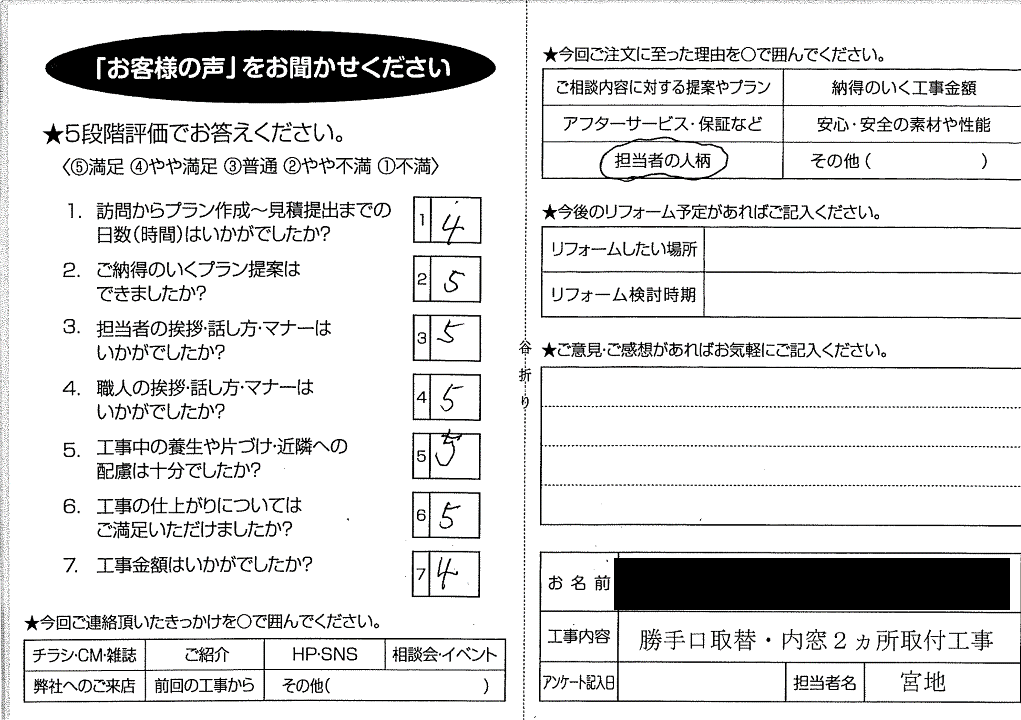 「お客様の声」をお聞かせください
★5段階評価でお答えください。
〈⑤満足 ④やや満足 ③普通 ②やや不満 ①不満〉
1. 訪問からプラン作成〜見積提出までの
日数(時間)はいかがでしたか?
1 4
2. ご納得のいくプラン提案は
できましたか?
2 5
3. 担当者の挨拶・話し方・マナーは
いかがでしたか?
3 5
4. 職人の挨拶・話し方・マナーは
いかがでしたか?
4 5
5. 工事中の養生や片づけ・近隣への
配慮は十分でしたか?
5 5
6. 工事の仕上がりについては
ご満足いただけましたか?
6 5
7. 工事金額はいかがでしたか?
7 4
★今回ご連絡頂いたきっかけを○で囲んでください。
チラシ・CM・雑誌 ご紹介 HP・SNS 相談会・イベント
弊社へのご来店 前回の工事から その他( )
谷折り
★今回ご注文に至った理由を○で囲んでください。
ご相談内容に対する提案やプラン 納得のいく工事金額
アフターサービス・保証など 安心・安全の素材や性能
担当者の人柄 その他( )
★今後のリフォーム予定があればご記入ください。
リフォームしたい場所
リフォーム検討時期
★ご意見・ご感想があればお気軽にご記入ください。
お名前
工事内容 勝手口取替・内窓2ヵ所取付工事
アンケート記入日 担当者名 宮地